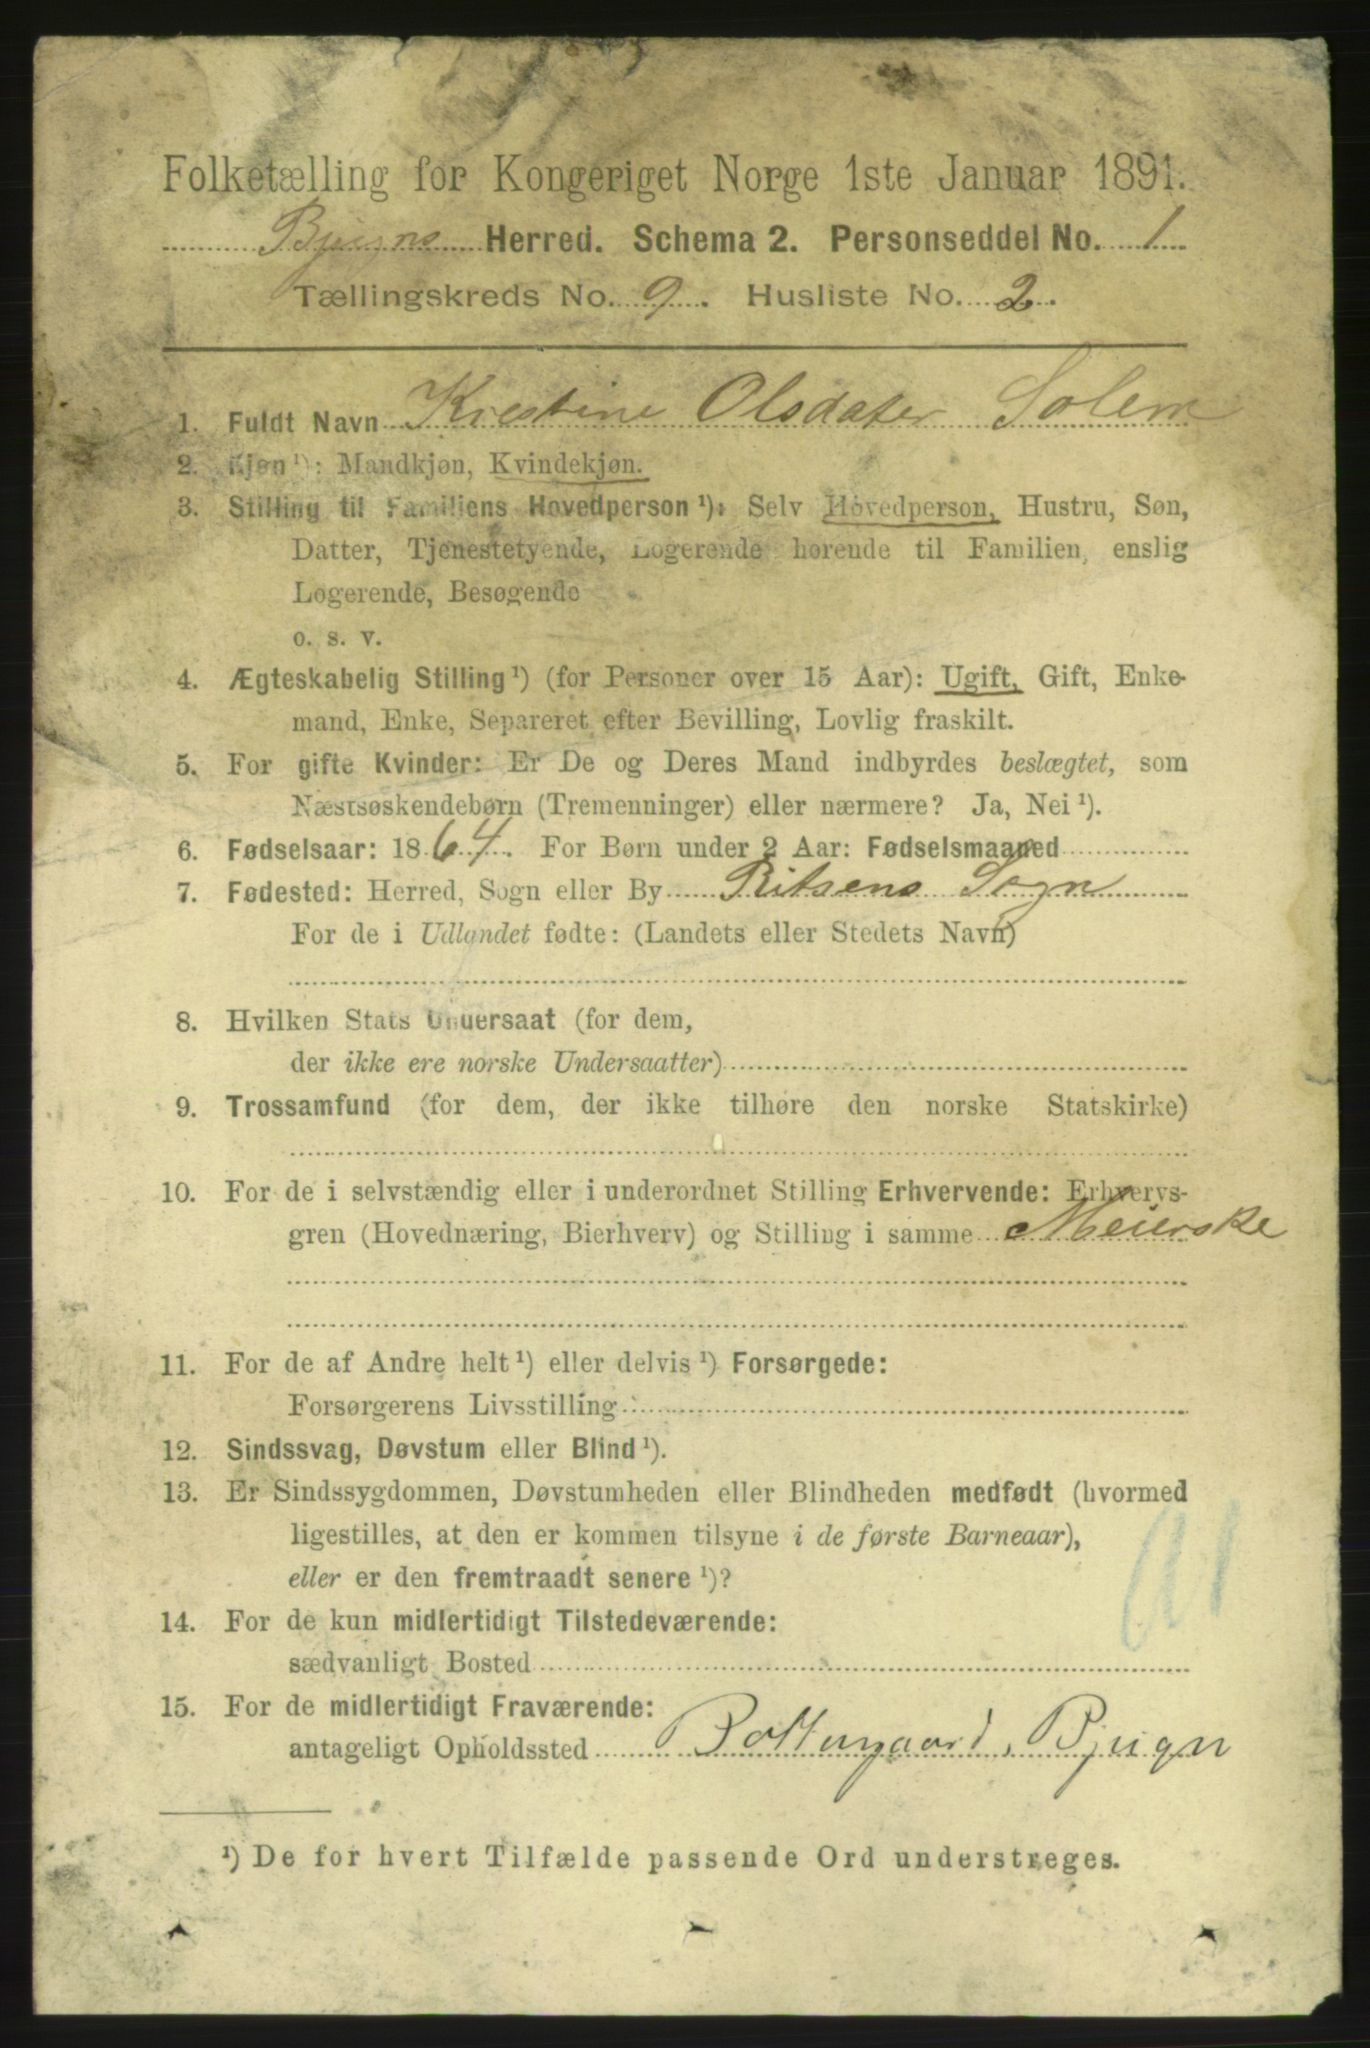 Folketælling for Kongeriget Norge 1ste Januar 1891.
Bjugns Herred. Schema 2. Personseddel No. 1
Tællingskreds No. 9. Husliste No. 2.
1. Fuldt Navn Kristine Olsdater Solem
2. Kjøn ¹): Mandkjøn, Kvindekjøn.
3. Stilling til Familiens Hovedperson ¹): Selv Hovedperson, Hustru, Søn,
Datter, Tjenestetyende, Logerende hørende til Familien, enslig
Logerende, Besøgende
o. s. v.
4. Ægteskabelig Stilling ¹) (for Personer over 15 Aar): Ugift, Gift, Enke-
mand, Enke, Separeret efter Bevilling, Lovlig fraskilt.
5. For gifte Kvinder: Er De og Deres Mand indbyrdes beslægtet, som
Næstsøskendebørn (Tremenninger) eller nærmere? Ja, Nei ¹).
6. Fødselsaar: 1864. For Børn under 2 Aar: Fødselsmaaned
7. Fødested: Herred, Sogn eller By Ritsens Sogn
For de i Udlandet fødte: (Landets eller Stedets Navn)
8. Hvilken Stats Undersaat (for dem,
der ikke ere norske Undersaatter)
9. Trossamfund (for dem, der ikke tilhøre den norske Statskirke)
10. For de i selvstændig eller i underordnet Stilling Erhvervende: Erhvervs-
gren (Hovednæring, Bierhverv) og Stilling i samme Meierske
11. For de af Andre helt ¹) eller delvis ¹) Forsørgede:
Forsørgerens Livsstilling
12. Sindssvag, Døvstum eller Blind ¹).
13. Er Sindssygdommen, Døvstumheden eller Blindheden medfødt (hvormed
ligestilles, at den er kommen tilsyne i de første Barneaar),
eller er den fremtraadt senere ¹)?
14. For de kun midlertidigt Tilstedeværende:
sædvanligt Bosted
15. For de midlertidigt Fraværende:
antageligt Opholdssted Bottengaard, Bjugn
¹) De for hvert Tilfælde passende Ord understreges.